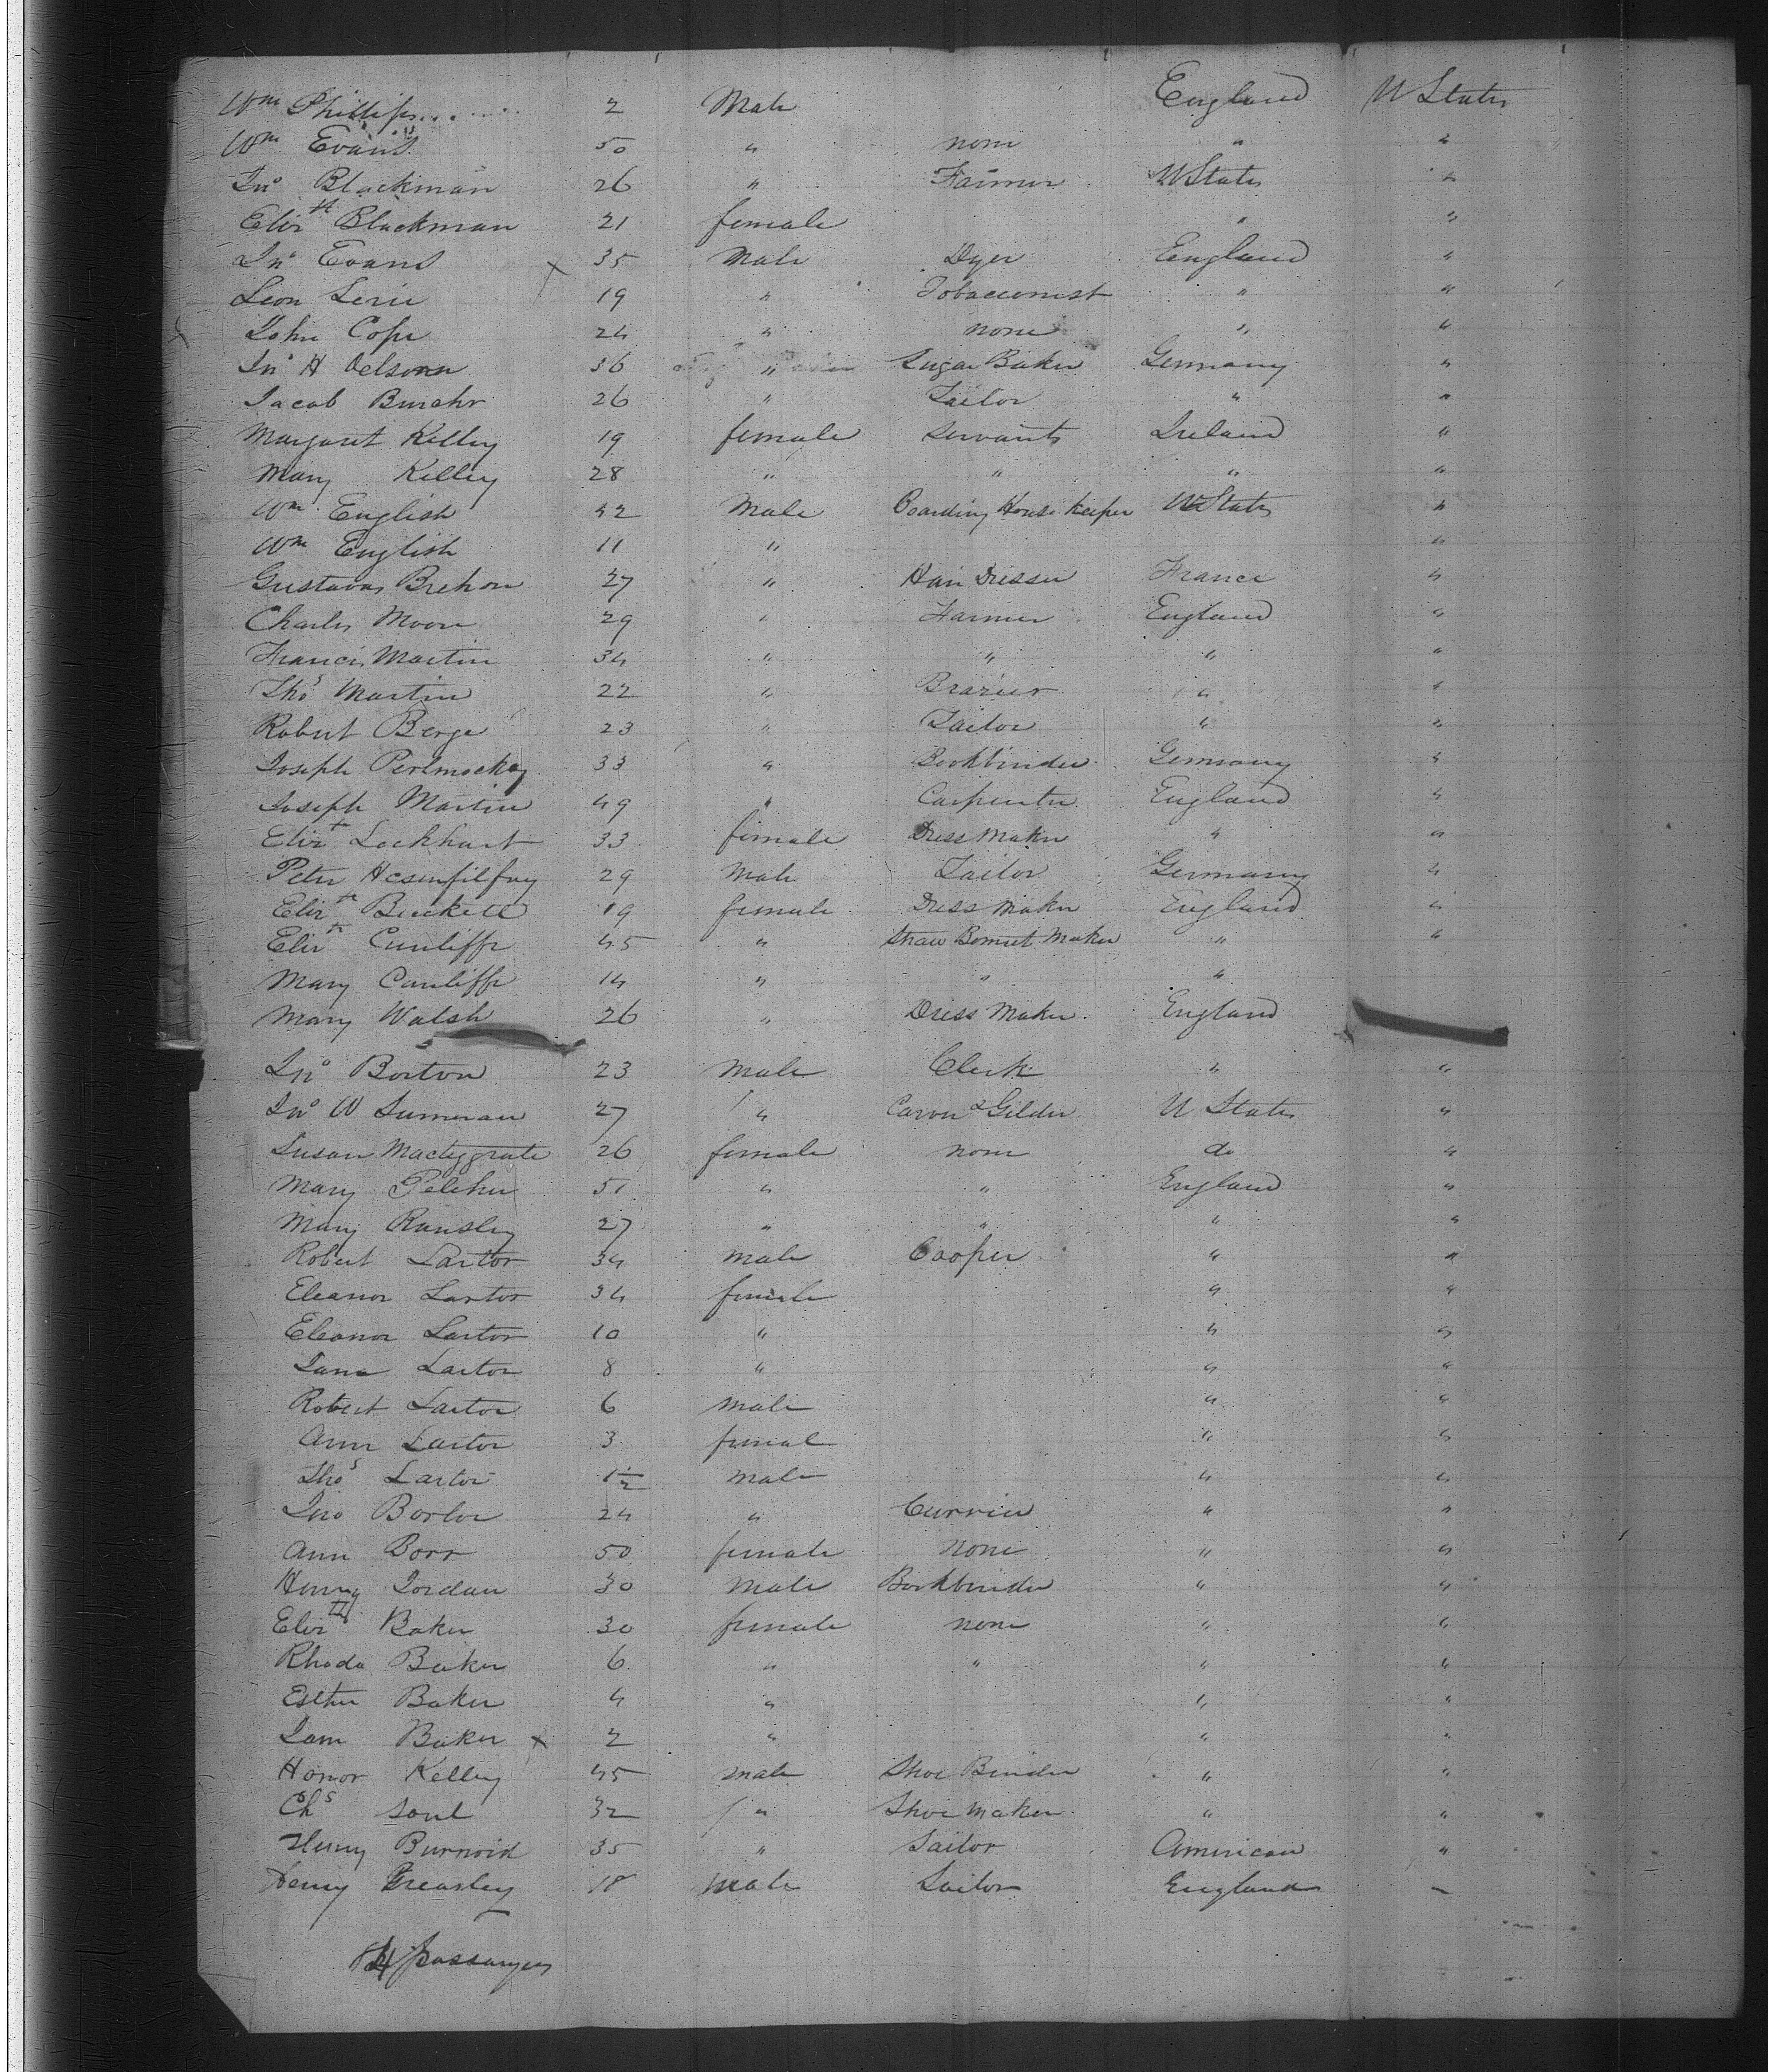 Wm Phillips 2 Male England U States
Wm Evans 50 " none " "
Jno Blackman 26 " Farmer U States "
Elizth Blackman 21 female " "
Jno Evans 35 Male Dyer England "
Leon Levie 19 " Tobacconist " "
John Cope 24 " none " "
Jno H 36 " Sugar Baker Germany "
Jacob 26 " Tailor " "
Margaret Kelley 19 female Servants Ireland "
Mary Kelley 28 " " " "
Wm English 42 Male Boarding House Keeper U States "
Wm English 11 " "
Gustavas Brehon 27 " Hair Dresser France "
Charles Moore 29 " Farmer England "
Francis Martin 34 " " " "
Thos Martin 22 " Brazier " "
Robert Berge 23 " Tailor " "
Joseph 33 " Bookbinder Germany "
Joseph Martin 49 " Carpenter England "
Elizth Lockhart 33 female Dress Maker " "
Peter 29 Male Tailor Germany "
Elizth Buckett 19 female Dress Maker England "
Elizth Cunliffe 45 " Straw Bonnet Maker " "
Mary Cunliffe 14 " " "
Mary Walsh 26 " Dress Maker England
Jno Borton 23 Male Clerk " "
Jno W 27 " Carver & Gilder U States "
Susan 26 female none do "
Mary Pelcher 51 " " England "
Mary Ransley 27 " " " "
Robert Sartor 34 male Cooper " "
Eleanor Sartor 34 female " "
Eleanor Sartor 10 " " "
Jane Sartor 8 " " "
Robert Sartor 6 male " "
Ann Sartor 3 femal " "
Thos Sartor 1½ male " "
Jno Borlor 24 " Currier " "
Ann Borr 50 female none " "
Henry Jordan 30 Male Bookbinder " "
Elizth Baker 30 female none " "
Rhoda Baker 6 " " " "
Esther Baker 4 " " "
Jane Baker x 2 " " "
Honor Kelley 45 male Shoe Binder " "
Chs Soul 32 " Shoe Maker " "
Henry 35 " Sailor American "
Henry Greasley 18 Male Sailor England
passangers